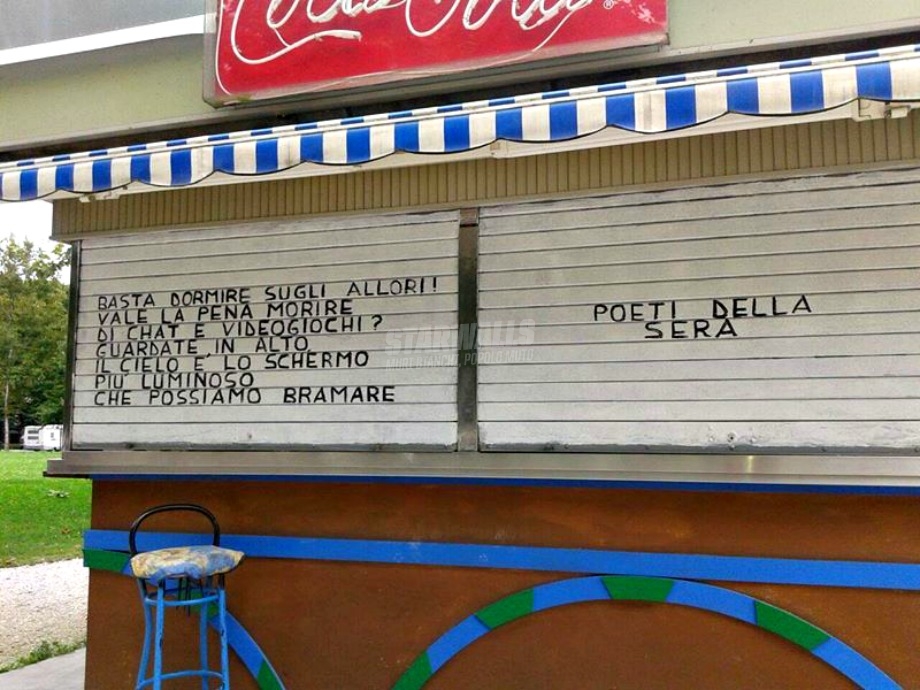 Coca-Cola
®
BASTA DORMIRE SUGLI ALLORI!
VALE LA PENA MORIRE
DI CHAT E VIDEOGIOCHI?
GUARDATE IN ALTO
IL CIELO È LO SCHERMO
PIU' LUMINOSO
CHE POSSIAMO BRAMARE
POETI DELLA
SERA
STARWALLS
MURI BIANCHI, POPOLO MUTO